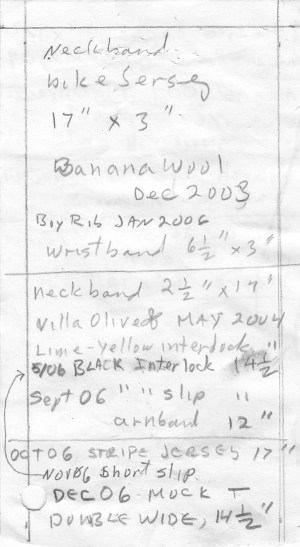 Neckband
bike Jersey
17" x 3"
Banana Wool
Dec 2003
Boy Rib JAN 2006
wristband 6 1/2" x 3"
neckband 2 1/2" x 17"
Villa Olive MAY 2004
Lime-Yellow interlock "
5/06 BLACK Interlock 14 1/2
Sept 06 " " slip "
armband 12"
OCT 06 STRIPE JERSEY 17"
NOV 06 Short slip.
DEC 06 - MOCK T
DOUBLE WIDE, 14 1/2"